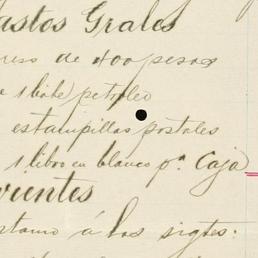 astos Grales
uro de 400 pesos
e 1 bote petroleo
estampillas postales
1 libro en blanco pª Caja
vientes
stamo á los sigtes: